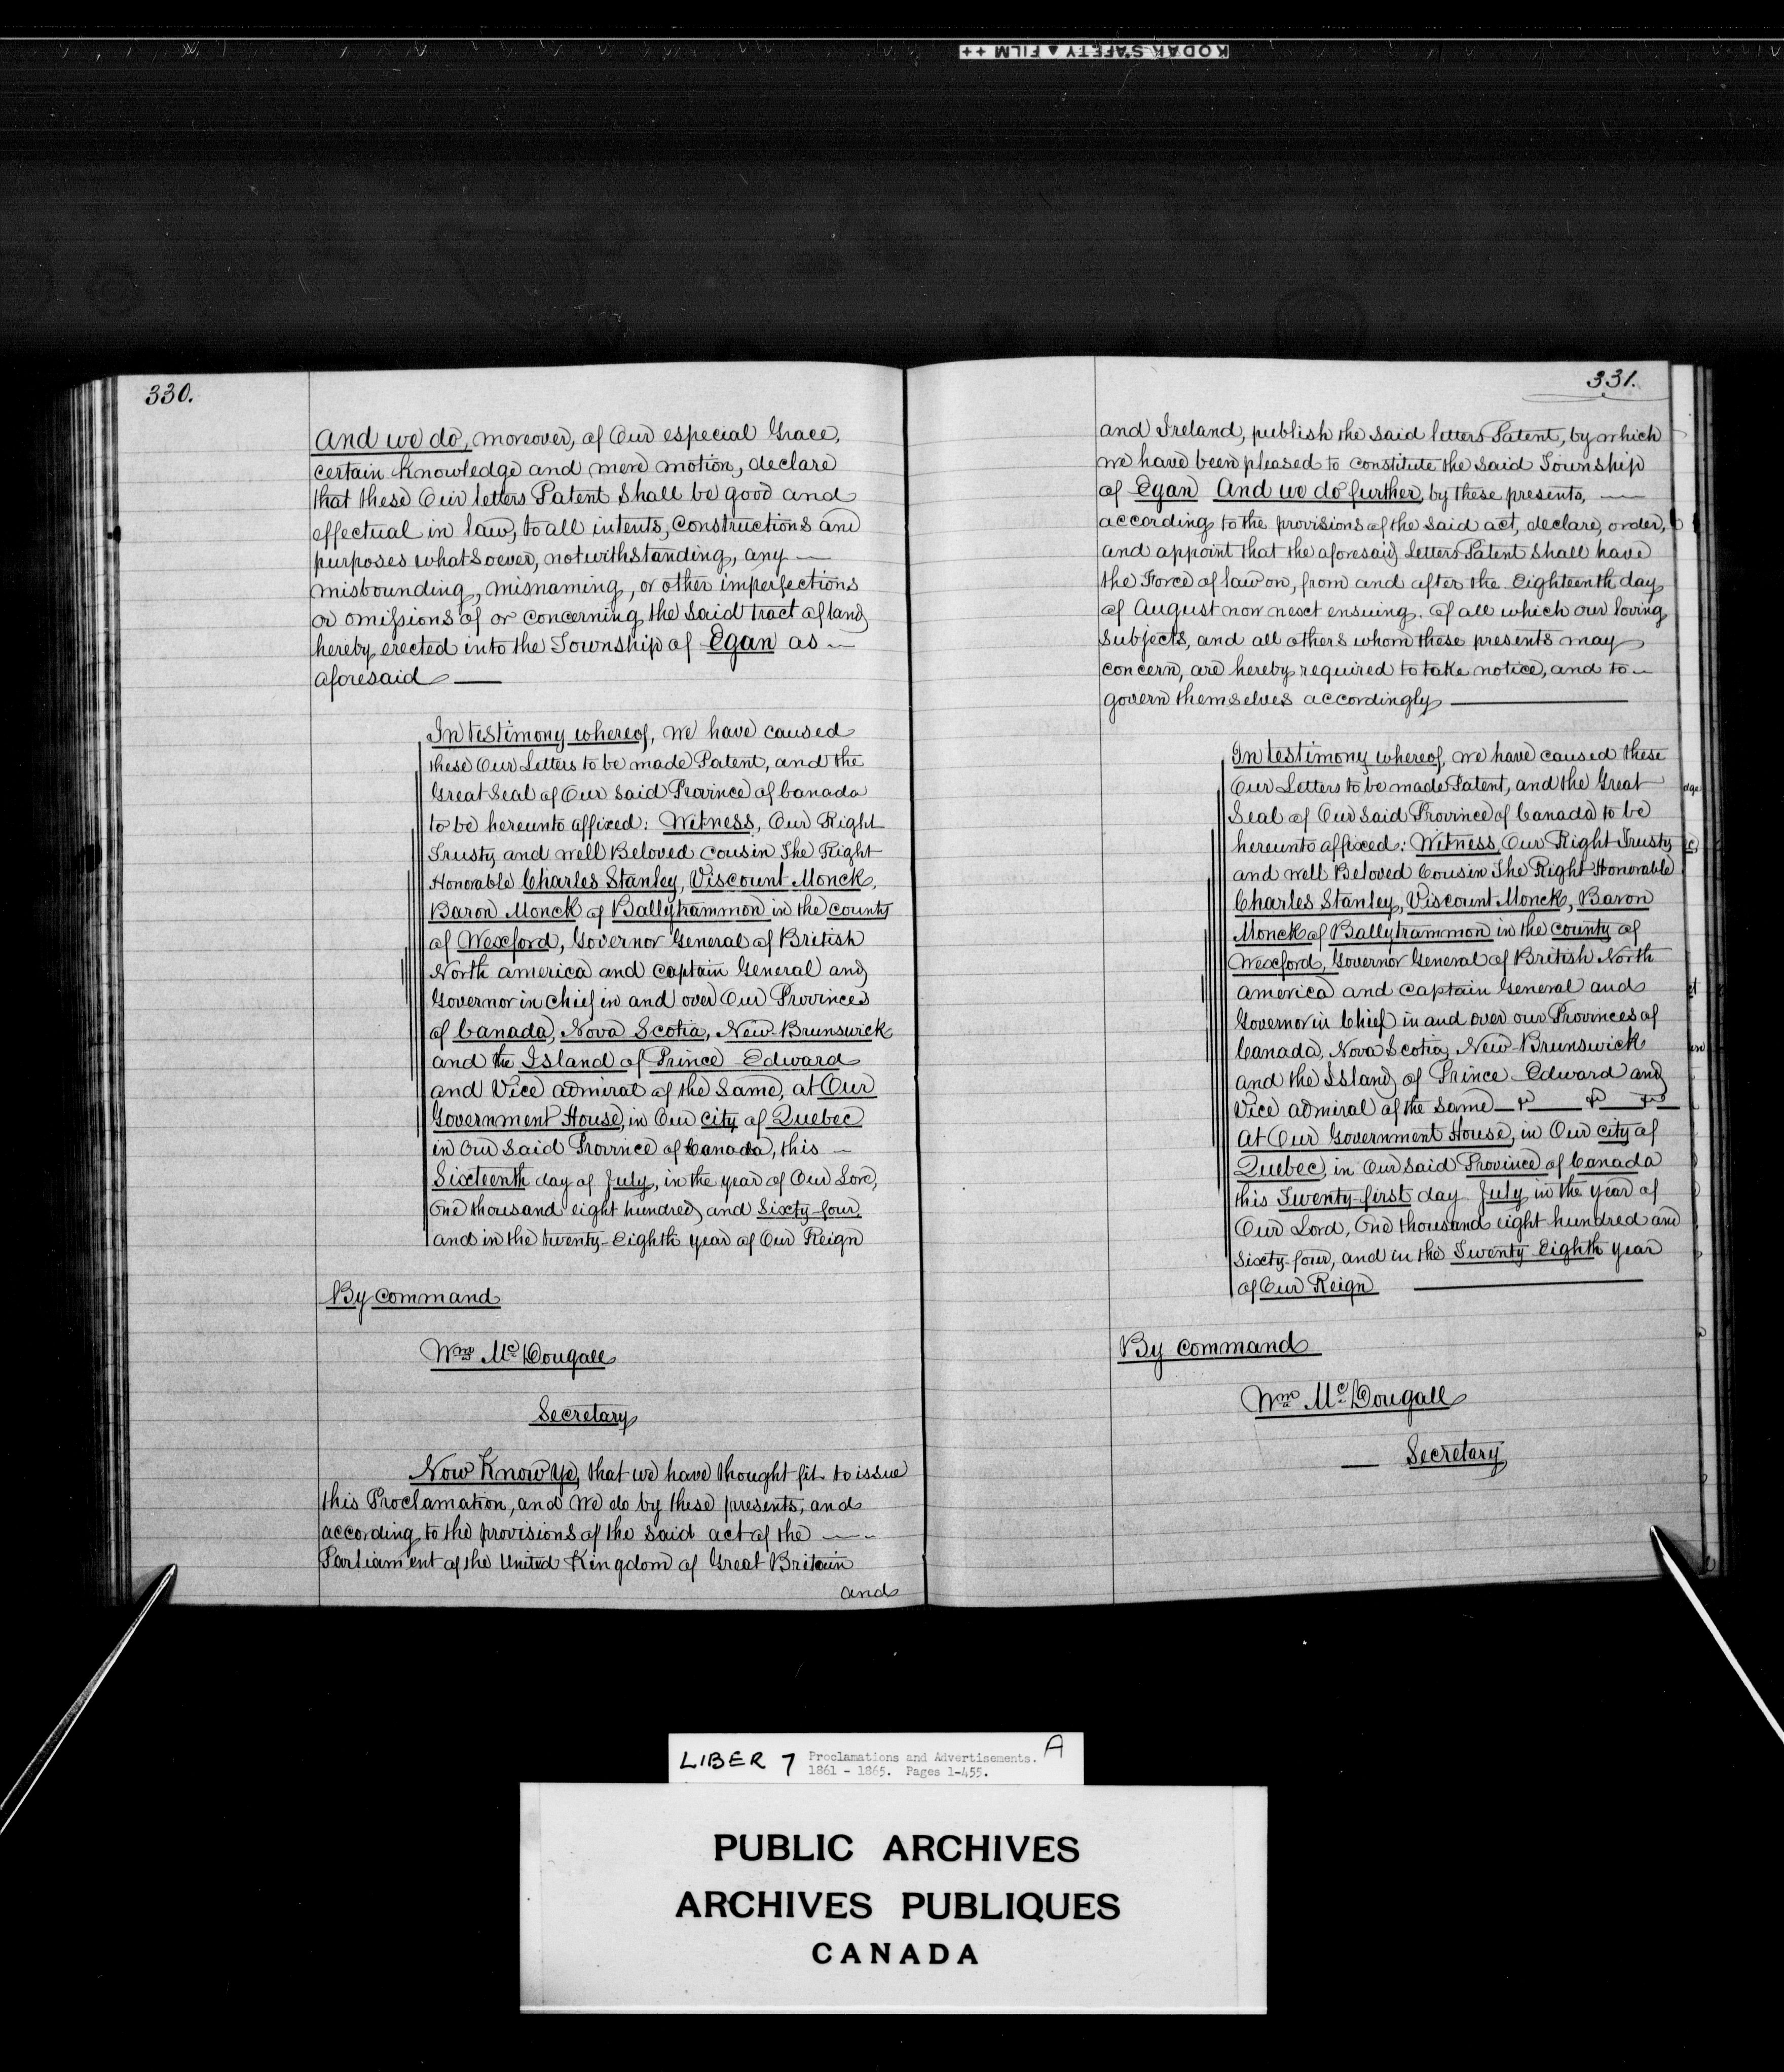 KODAK SAFETY ▲ FILM ++
330.
And we do, moreover, of Our especial Grace,
certain Knowledge and mere motion, declare
that these Our letters Patent Shall be good and
effectual in law, to all intents, Constructions and
purposes whatsoever, notwithstanding, any —
misbounding, misnaming, or other imperfections
or omissions of or concerning the said tract of land
hereby erected into the Township of Egan as —
aforesaid —
In testimony whereof, We have caused
these Our Letters to be made Patent, and the
Great Seal of Our Said Province of Canada
to be hereunto affixed: Witness, Our Right
Trusty and well Beloved Cousin The Right
Honorable Charles Stanley, Viscount Monck,
Baron Monck of Ballytrammon in the County
of Wexford, Governor General of British
North america and Captain General and
Governor in chief in and over Our Provinces
of Canada, Nova Scotia, New-Brunswick
and the Island of Prince Edward
and Vice admiral of the Same, at Our
Government House, in Our City of Quebec
in Our Said Province of Canada, this —
Sixteenth day of July, in the year of Our Lord,
One thousand eight hundred and Sixty-four
and in the twenty-Eighth year of Our Reign
By Command
Wm Mc Dougall
Secretary
Now Know Ye, that we have thought fit to issue
this Proclamation, and We do by these presents, and
according to the provisions of the said act of the —
Parliament of the United Kingdom of Great Britain
and
331.
and Ireland, publish the said letters Patent, by which
we have been pleased to constitute the said Township
of Egan And we do further, by these presents, —
according to the provisions of the said act, declare, order,
and appoint that the aforesaid Letters Patent shall have
the Force of law on, from and after the Eighteenth day
of August now next ensuing. of all which our loving
Subjects, and all others whom these presents may
concern, are hereby required to take notice, and to —
govern themselves accordingly —
In testimony whereof, we have caused these
Our Letters to be made Patent, and the Great
Seal of Our Said Province of Canada to be
hereunto affixed: Witness, Our Right Trusty
and well Beloved Cousin The Right Honorable
Charles Stanley, Viscount Monck, Baron
Monck of Ballytrammon in the County of
Wexford, Governor General of British North
America and Captain General and
Governor in Chief in and over our Provinces of
Canada, Nova Scotia, New-Brunswick
and the Island of Prince Edward and
Vice admiral of the Same — & — & — &
at Our Government House, in Our City of
Quebec, in Our Said Province of Canada
this Twenty-first day July in the year of
Our Lord, One thousand eight hundred and
Sixty-four, and in the Twenty Eighth year
of Our Reign —
By Command
Wm Mc Dougall
— Secretary
LIBER 7 Proclamations and Advertisements. A
1861 - 1865. Pages 1-455.
PUBLIC ARCHIVES
ARCHIVES PUBLIQUES
CANADA